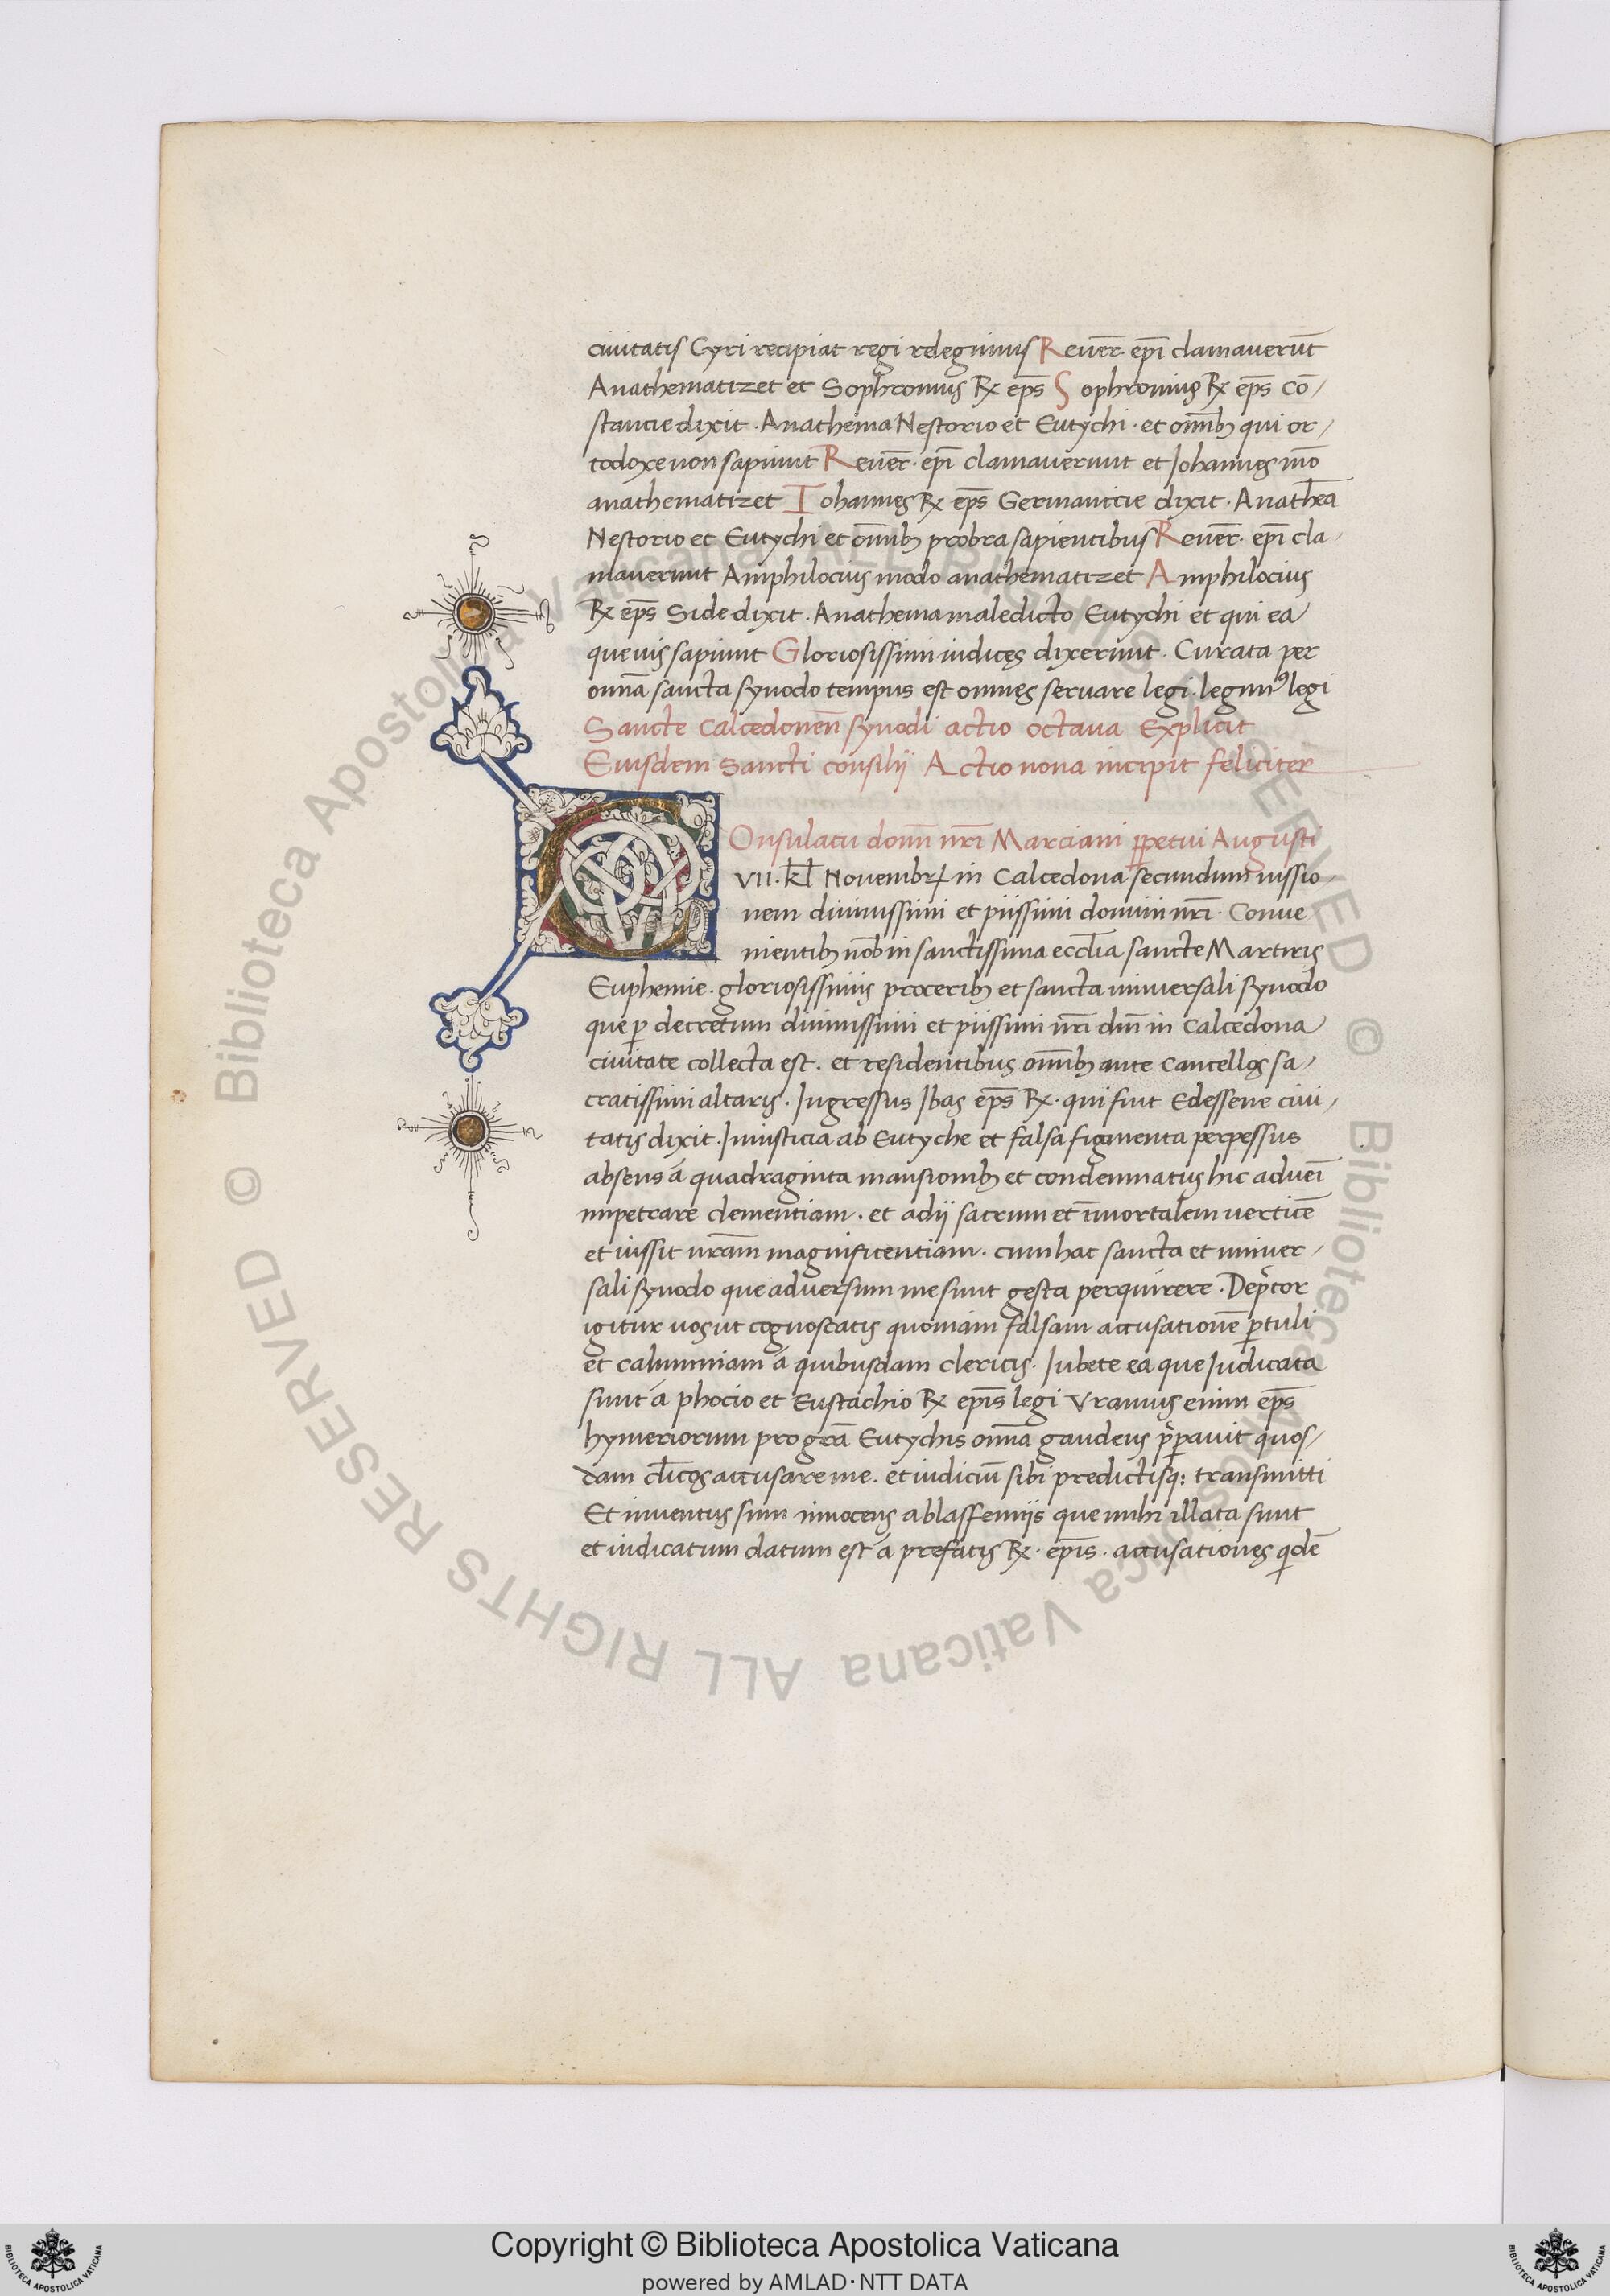 ciuitatis Cyri recipiat regi relegimus Reuer̄. ep̄i clamauerūt
Anathematizet et Sophronius R̵ ep̄s Sophronius R̵ ep̄s cō-
stancie dixit. Anathema Nestorio et Eutychi. et om̄ib; qui or-
todoxe non sapiunt Reuer̄. ep̄i clamauerunt et Johannes mō
anathematizet Iohannes R̵ ep̄s Germanicie dixit. Anathēa
Nestorio et Eutychi et om̄ib; probra sapientibus Reuer̄. ep̄i cla-
mauerunt Amphilocius modo anathematizet Amphilocius
R̵ ep̄s Side dixit. Anathema maledicto Eutychi et qui ea
que uis sapiunt Gloriosissimi iudices dixerunt. Curata per
om̄a sancta synodo tempus est omnes seruare legi. legim⁹ legi
Sancte Calcedonen̄ synodi actio octaua Explicit
Eiusdem Sancti consilij Actio nona incipit feliciter
COnsulatu domī nr̄i Marciani ꝑpetui Augusti
VII. kl̄ Nouembr̄ in Calcedona secundum iussio-
nem diuinissimi et piissimi domini nr̄i. Conue
nientib; nob̄ in sanctissima eccl̄ia sancte Martiris
Euphemie. gloriosissimis procerib; et sancta uniuersali synodo
que ꝑ decretum diuinissimi et piissimi nr̄i dn̄i in Calcedona
ciuitate collecta est. et residentibus om̄ib; ante Cancellos sa-
cratissimi altaris. Ingressus Ibas ep̄s R̵. qui fuit Edessene ciui-
tatis dixit. Iniusticia ab Eutyche et falsa figmenta perpessus
absens á quadraginta mansionib; et condemnatus hic aduenī
impetrare clementiam. et adij sacrum et īmortalem uerticē
et iussit ur̄am magnificentiam. cum hac sancta et uniuer-
sali synodo que aduersum me sunt gesta perquirere. Dep̄cor
igitur uos ut cognoscatis quoniam falsam accusationē ꝑtuli
et calumniam á quibusdam clericis. Iubete ea que Judicata
sunt á phocio et Eustachio R̵ ep̄is legi Vranius enim ep̄s
hymeriorum pro grā Eutychis om̄a gaudens p̄ꝑauit quos-
dam cl̄icos accusare me. et iudiciū sibi predictisq: transmitti
Et inuentus sum innocens a blasfemijs que mihi illata sunt
et iudicatum datum est á prefatis R̵. ep̄is. accusationes q̇dē
Copyright © Biblioteca Apostolica Vaticana
powered by AMLAD·NTT DATA